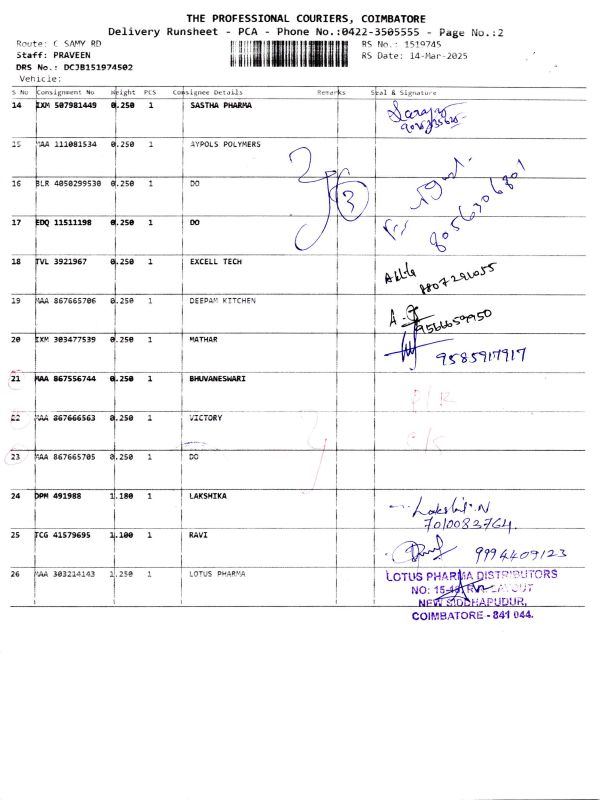 THE PROFESSIONAL COURIERS, COIMBATORE
Delivery Runsheet - PCA - Phone No.:0422-3505555 - Page No.:2
Route: C SAMY RD
RS No.: 1519745
Staff: PRAVEEN
RS Date: 14-Mar-2025
DRS No.: DCJB151974502
Vehicle:
S No Consignment No Weight PCS Consignee Details Remarks Seal & Signature
14 IXM 507981449 0.250 1 SASTHA PHARMA
15 MAA 111081534 0.250 1 AYPOLS POLYMERS
16 BLR 4050299530 0.250 1 DO 3
8056306801
17 EDQ 11511198 0.250 1 DO
18 TVL 3921967 0.250 1 EXCELL TECH
8807291055
19 MAA 867665706 0.250 1 DEEPAM KITCHEN
9566659950
20 IXM 303477539 0.250 1 MATHAR 9585917917
21 MAA 867556744 0.250 1 BHUVANESWARI
22 MAA 867666563 0.250 1 VICTORY
23 MAA 867665705 0.250 1 DO
24 DPM 491988 1.180 1 LAKSHIKA
7010083764.
25 TCG 41579695 1.100 1 RAVI 9994409123
26 MAA 303214143 1.250 1 LOTUS PHARMA LOTUS PHARMA DISTRIBUTORS
NEW SIDDHAPUDUR,
COIMBATORE - 641 044.